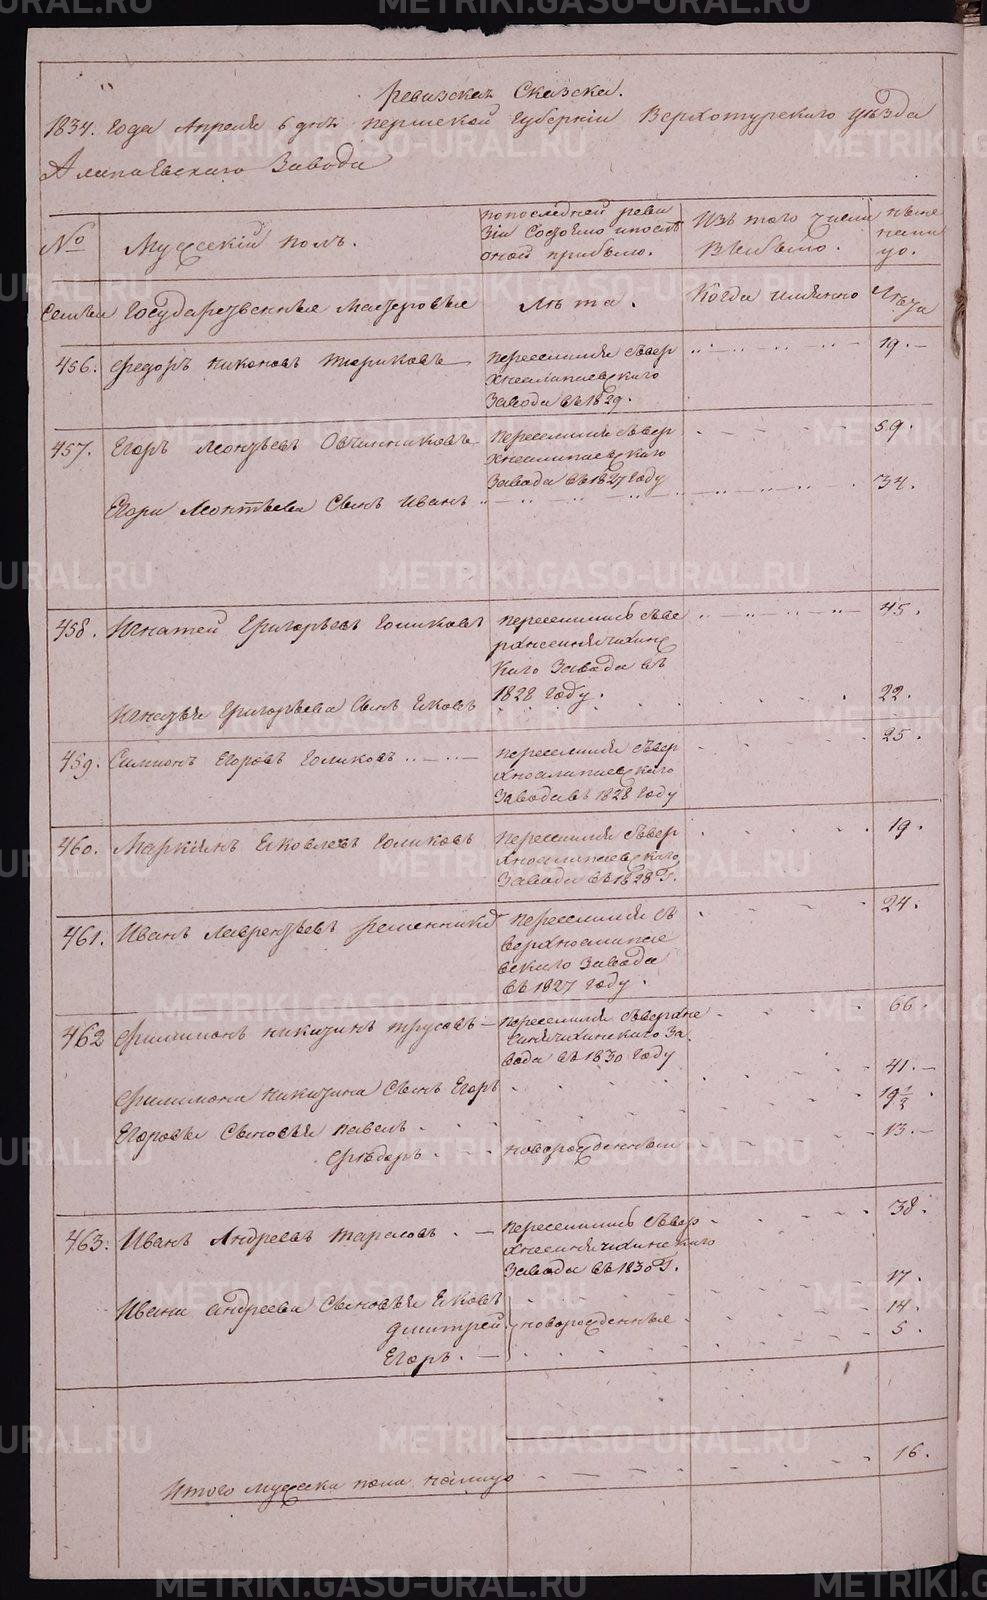 Ревизская Сказска.
1834. года Апреля 6 дня Пермской Губернии Верхотурского уѣзда
Алапаевскаго Завода
№
Мужескій полъ.
по последней реви
зіи Состояло и послѣ
оной прибыло.
Изъ того числа
Выбыло.
ныне
на ли
цо.
Семьи
Государственные Мастеровые
Лѣта.
Когда имянно
Лѣта
456.
Федоръ Никоновъ Ториковъ
переселился съвер
хнеалапаевскаго
Завода въ 1829.
19.
457.
Егоръ Леонтьевъ Овчинниковъ
переселился съвер
хнеалапаевскаго
Завода въ 1827 Году
59.
Егора Леонтьева Сынъ Иванъ
34.
458.
Игнатей Григорьевъ Голиковъ
переселились съве
рхнесинячихинс
каго Завода въ
1828 Году.
45.
Игнатья Григорьева Сынъ Яковъ
22.
459.
Симионъ Егоровъ Голиковъ
переселился съвер
хнеалапаевскаго
Завода въ 1828 Году
25.
460.
Маркіянъ Яковлевъ Голиковъ
переселился съвер
хнеалапаевскаго
Завода въ 1828 Г.
19.
461.
Иванъ Лаврентьевъ
переселился съ
верхнеалапае
вскаго Завода
въ 1827 году.
24.
462
Филимонъ Никитинъ Трусовъ
переселился съверхне
синячихинскаго За
вода въ 1830 Году
66.
Филимона Никитина Сынъ Егоръ
41.
Егоровы Сыновья Павелъ
19 1/2
Фёдоръ
новорожденный
13.
463.
Иванъ Андреевъ Тарасовъ.
переселились съвер
хнесинячихинскаго
Завода въ 1830 Г.
38.
Ивана Андреева Сыновья Яковъ
17.
Дмитрей
новорожденные
14.
Егоръ.
5.
Итого мужеска пола налицо
16.
METRIKI.GASO-URAL.RU